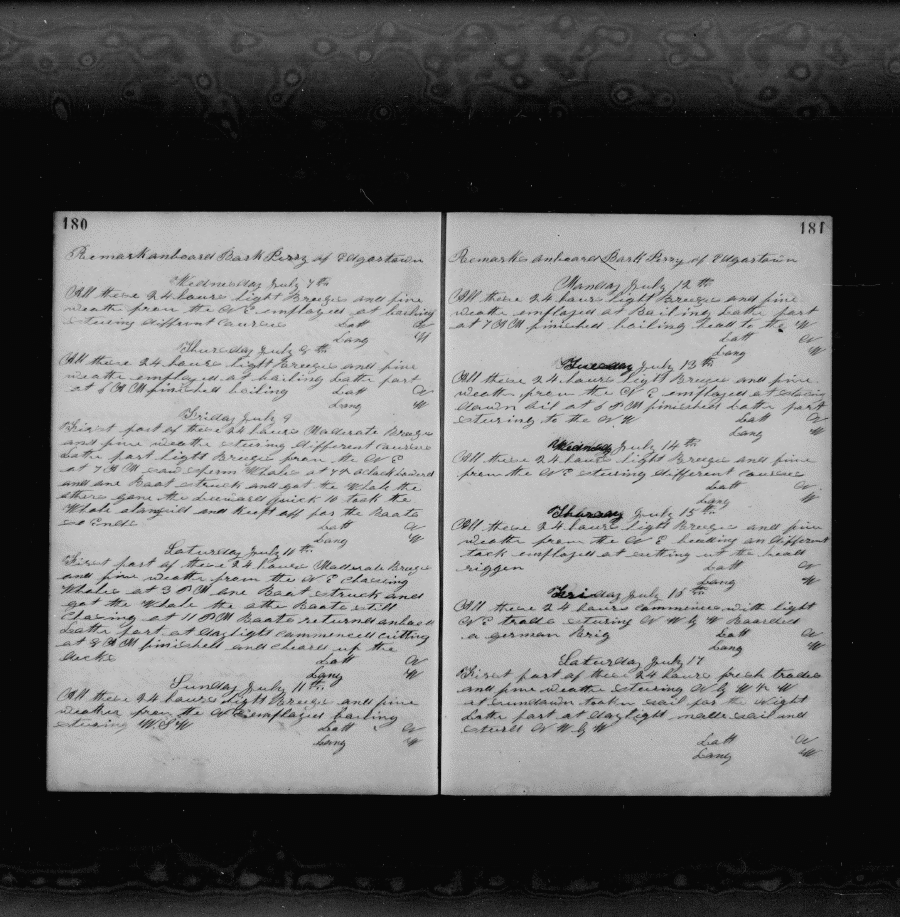 180
Remarks onboard Bark Perry of Edgartown
Wednesday July 7th
All these 24 hours light Breeze and fine
weathe from the N E employed at boiling
stering differnt courses Latt N
Long W
Thursday July 8th
All these 24 hours light Breeze and fine
weathe employed at boiling Latte part
at 6 A M finished boiling Latt N
Long W
Friday July 9
First part of these 24 hours Moderate Breeze
and fine weathe stering different courses
Latte part light Breeze from the N E
at 7 A M saw sperm Whale at 7½ oclock lowerd
and one Boat struck and got the Whale the
others gone to leeward quick to took the
Whale alongsid and Keept off for the Boats
so Ends Latt N
Long W
Saturday July 10th
First part of these 24 hours Moderate Breeze
and fine weathe from the N E chasing
Whales at 3 P M one Boat struck and
got the Whale the othe Boats still
chasing at 11 P M Boats returned onboard
Latte part at daylight commenced cutting
at 8 A M finished and cleard up the
decks Latt N
Long W
Sunday July 11th
All these 24 hours light Breeze and fine
weathe from the N E employed boiling
stering W S W Latt N
Long W
181
Remarks onboard Bark Perry of Edgartown
Monday July 12th
All these 24 hours light Breeze and fine
weathe employed at Boiling Latte part
at 7 A M finished boiling head to the W
Latt N
Long W
Tuesday July 13th
All these 24 hours light Breeze and fine
weath from the N E employed at stowing
down oil at 6 P M finished Latte part
stering to the N W Latt N
Long W
July 14th
All these 24 hours light Breeze and fine
from the N E stering different courses
Latt N
Long W
Thursday July 15th
All these 24 hours light Breeze and fine
weathe from the N E heading on different
tack employed at cutting up the head
riggen Latt N
Long W
Friday July 16th
All these 24 hours commences with light
N E trades stering N W by W Boarded
a german Brig Latt N
Long W
Saturday July 17
First part of these 24 hours fresh trades
and fine weathe stering N by W ½ W
at sundown taken sail for the Night
Latte part at daylight made sail and
sterd N W by W
Latt N
Long W